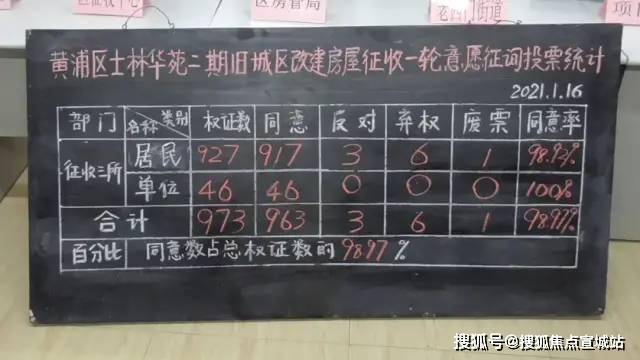 区房管局
老西门街道
黄浦区士林华苑二期旧城区改建房屋征收一轮意愿征询投票统计
2021.1.16
部门 名称 类别 权证数 同意 反对 弃权 废票 同意率
征收三所 居民 927 917 3 6 1 98.92%
单位 46 46 0 0 0 100%
合计 973 963 3 6 1 98.97%
百分比 同意数占总权证数的98.97%
搜狐号@搜狐焦点宣城站